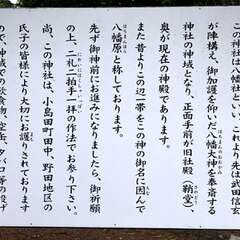 この神社は八幡社といい、これより先は武田信玄
が陣構え、御加護を仰いだ八幡大神を奉斎する
神社の神域となり、正面手前が旧社殿（鞘堂）、
奥が現在の神殿であります。
また昔よりこの辺一帯をこの神の御名に因んで
八幡原と称しております。
先ず御神前にお進みになりましたら、御祈願
の上、二礼二拍手一拝の作法でお参り下さい。
尚、この神社は、小島田町田中、野田地区の
氏子の皆様により大切にお護りされております
ので神域での飲食物、空缶、タバコ等の投げ